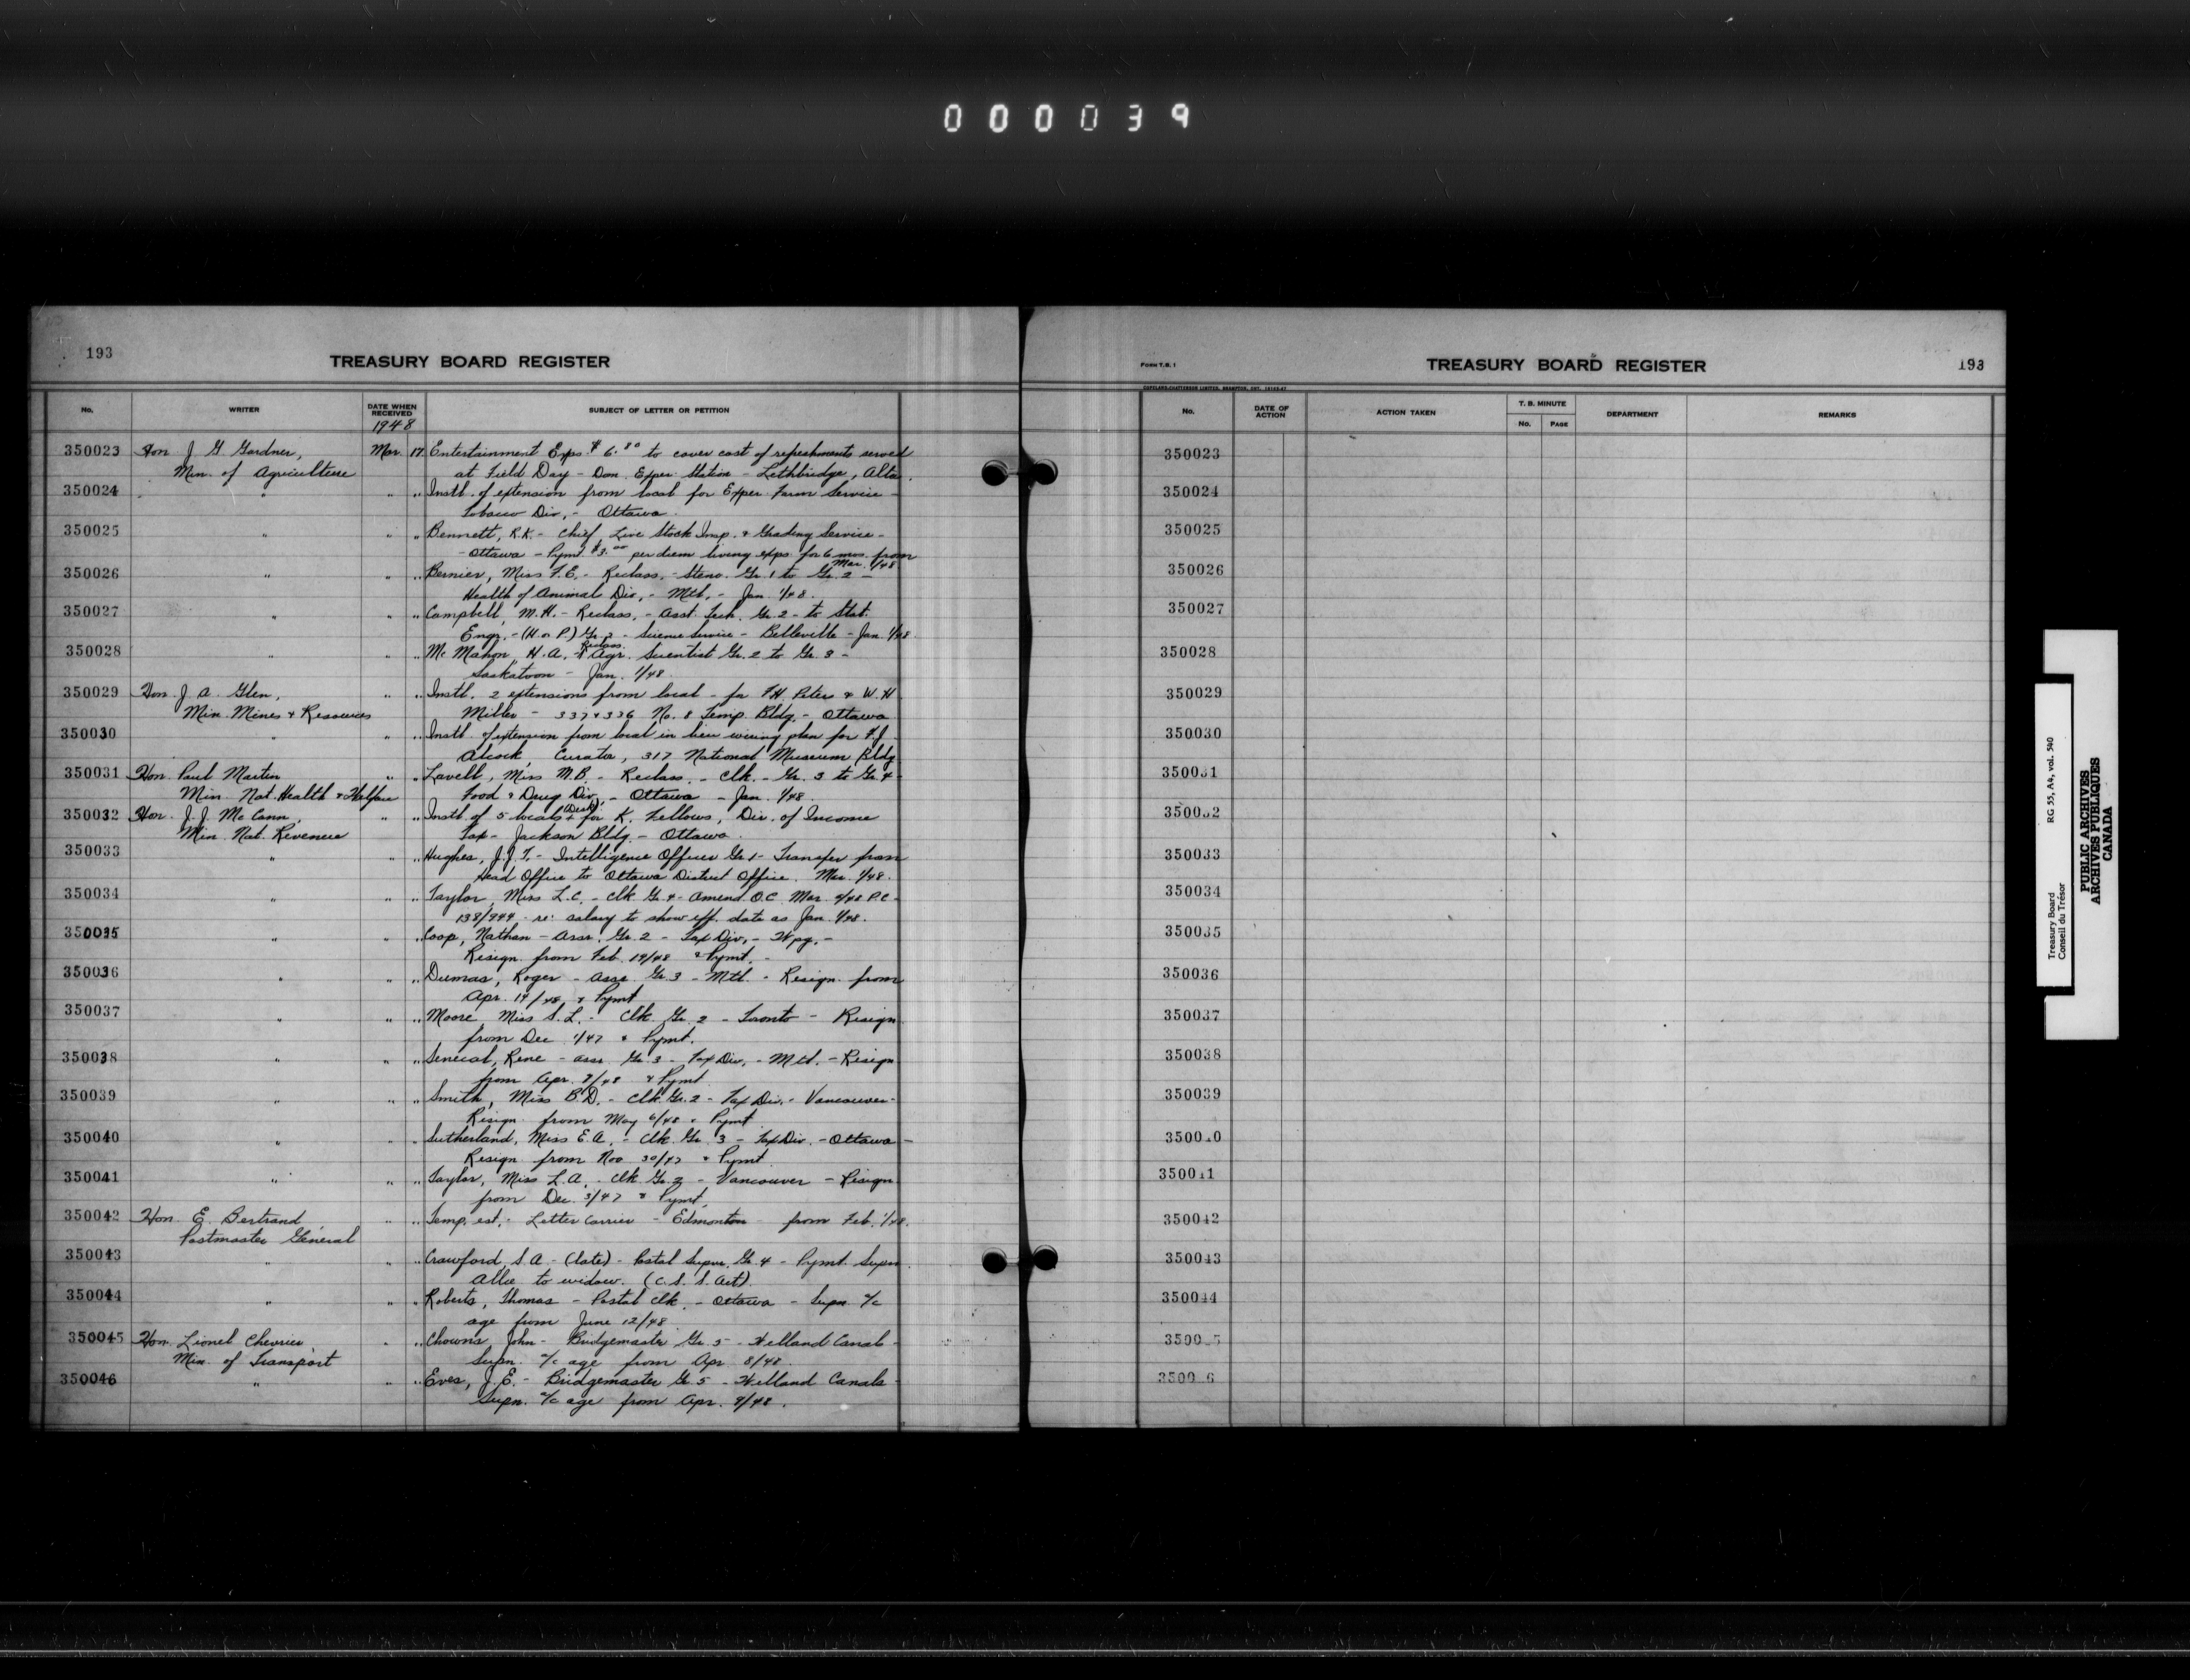 000039
193
TREASURY BOARD REGISTER
No.
WRITER
DATE WHEN RECEIVED
SUBJECT OF LETTER OR PETITION
1948
350023 Hon J G Gardner, Mar. 17 Entertainment Exps. $6.80 to cover cost of refreshments served
Min. of Agriculture at Field Day - Dom. Exper. Station - Lethbridge, Alta.
350024 " " " Instl. of extension from local for Exper. Farm Service -
Tobacco Div, - Ottawa.
350025 " " " Bennett, R.K. - Chief, Live Stock Insp. & Grading Service -
- Ottawa - Pymt. $3.00 per diem living exps. for 6 mos. from
Mar. 1/48
350026 " " " Bernier, Miss F.E. - Reclass. - Steno. Gr. 1 to Gr. 2 -
Health of Animal Div, - Mtl. - Jan. 1/48.
350027 " " " Campbell, M.H. - Reclass, - Asst. Tech. Gr. 2 - to Stat.
Engr. - (H. or P.) Gr. 2 - Science Service - Belleville - Jan. 1/48.
350028 " " " Mc Mahon, H.A. - Reclass. Agr. Scientist Gr. 2 to Gr. 3 -
Saskatoon - Jan. 1/48
350029 Hon. J. A. Glen, " " Instl. 2 extensions from local - for F.H. Peters & W.H
Min. Mines & Resources Miller - 337 & 336 No. 8 Temp. Bldg. - Ottawa
350030 " " " Instl. of extension from local in lieu wiring plan for F.J.
Alcock, Curator, 317 National Museum Bldg
350031 Hon. Paul Martin " " Lavell, Miss M.B. - Reclass. - Clk. - Gr. 3 to Gr. 4 -
Min. Nat. Health & Welfare Food & Drug Div. - Ottawa - Jan. 1/48.
350032 Hon. J.J. Mc Cann, " " Instl. of 5 locals (Desk) for K. Fellows, Div. of Income
Min. Nat. Revenue Tax - Jackson Bldg - Ottawa.
350033 " " " Hughes, J.J.F. - Intelligence Officer Gr 1 - Transfer from
Head Office to Ottawa District Office. Mar. 1/48.
350034 " " " Taylor, Miss L.C. - Clk Gr. 4 - Amend. O.C. Mar. 4/48 P.C. -
138/944 - re: salary to show eff. date as Jan. 1/48.
350035 " " " Coop, Nathan - Assr. Gr. 2 - Tax Div, - Wpg. -
Resign. from Feb. 19/48 & Pymt. -
350036 " " " Dumas, Roger - Assr. Gr. 3 - Mtl. - Resign. from
Apr. 14/48, & Pymt
350037 " " " Moore, Miss S.L. - Clk. Gr. 2 - Toronto - Resign
from Dec 1/47 & Pymt.
350038 " " " Senecal, Rene - Assr. Gr. 3 - Tax Div, - Mtl. - Resign
from Apr. 9/48 & Pymt
350039 " " " Smith, Miss B.D. - Clk. Gr. 2 - Tax Div. - Vancouver -
Resign from May 6/48 & Pymt
350040 " " " Sutherland, Miss E.A. - Clk. Gr. 3 - Tax Div. - Ottawa -
Resign. from Nov 30/47 & Pymt
350041 " " " Taylor, Miss L.A. - Clk Gr. 2 - Vancouver - Resign
from Dec. 3/47 & Pymt,
350042 Hon. E. Bertrand, " " Temp. est. - Letter Carrier - Edmonton - from Feb. 1/48.
Postmaster General
350043 " " " Crawford, S.A. - (late) - Postal Supvr. Gr. 4 - Pymt. Supn
Allce to widow. (C.S.S. Act)
350044 " " " Roberts, Thomas - Postal Clk. - Ottawa - Supn. a/c
age from June 12/48
350045 Hon. Lionel Chevrier, " " Chowns, John - Bridgemaster Gr. 5 - Welland Canal -
Min. of Transport Supn. a/c age from Apr 8/48.
350046 " " " Eves, J.E. - Bridgemaster Gr 5 - Welland Canals -
Supn. a/c age from Apr. 9/48.
FORM T.B. 1
TREASURY BOARD REGISTER
193
No.
DATE OF ACTION
ACTION TAKEN
T. B. MINUTE
No.
PAGE
DEPARTMENT
REMARKS
350023
350024
350025
350026
350027
350028
350029
350030
350031
350032
350033
350034
350035
350036
350037
350038
350039
350040
350041
350042
350043
350044
350045
350046
Treasury Board RG 55, A4, vol. 540
Conseil du Trésor
PUBLIC ARCHIVES
ARCHIVES PUBLIQUES
CANADA